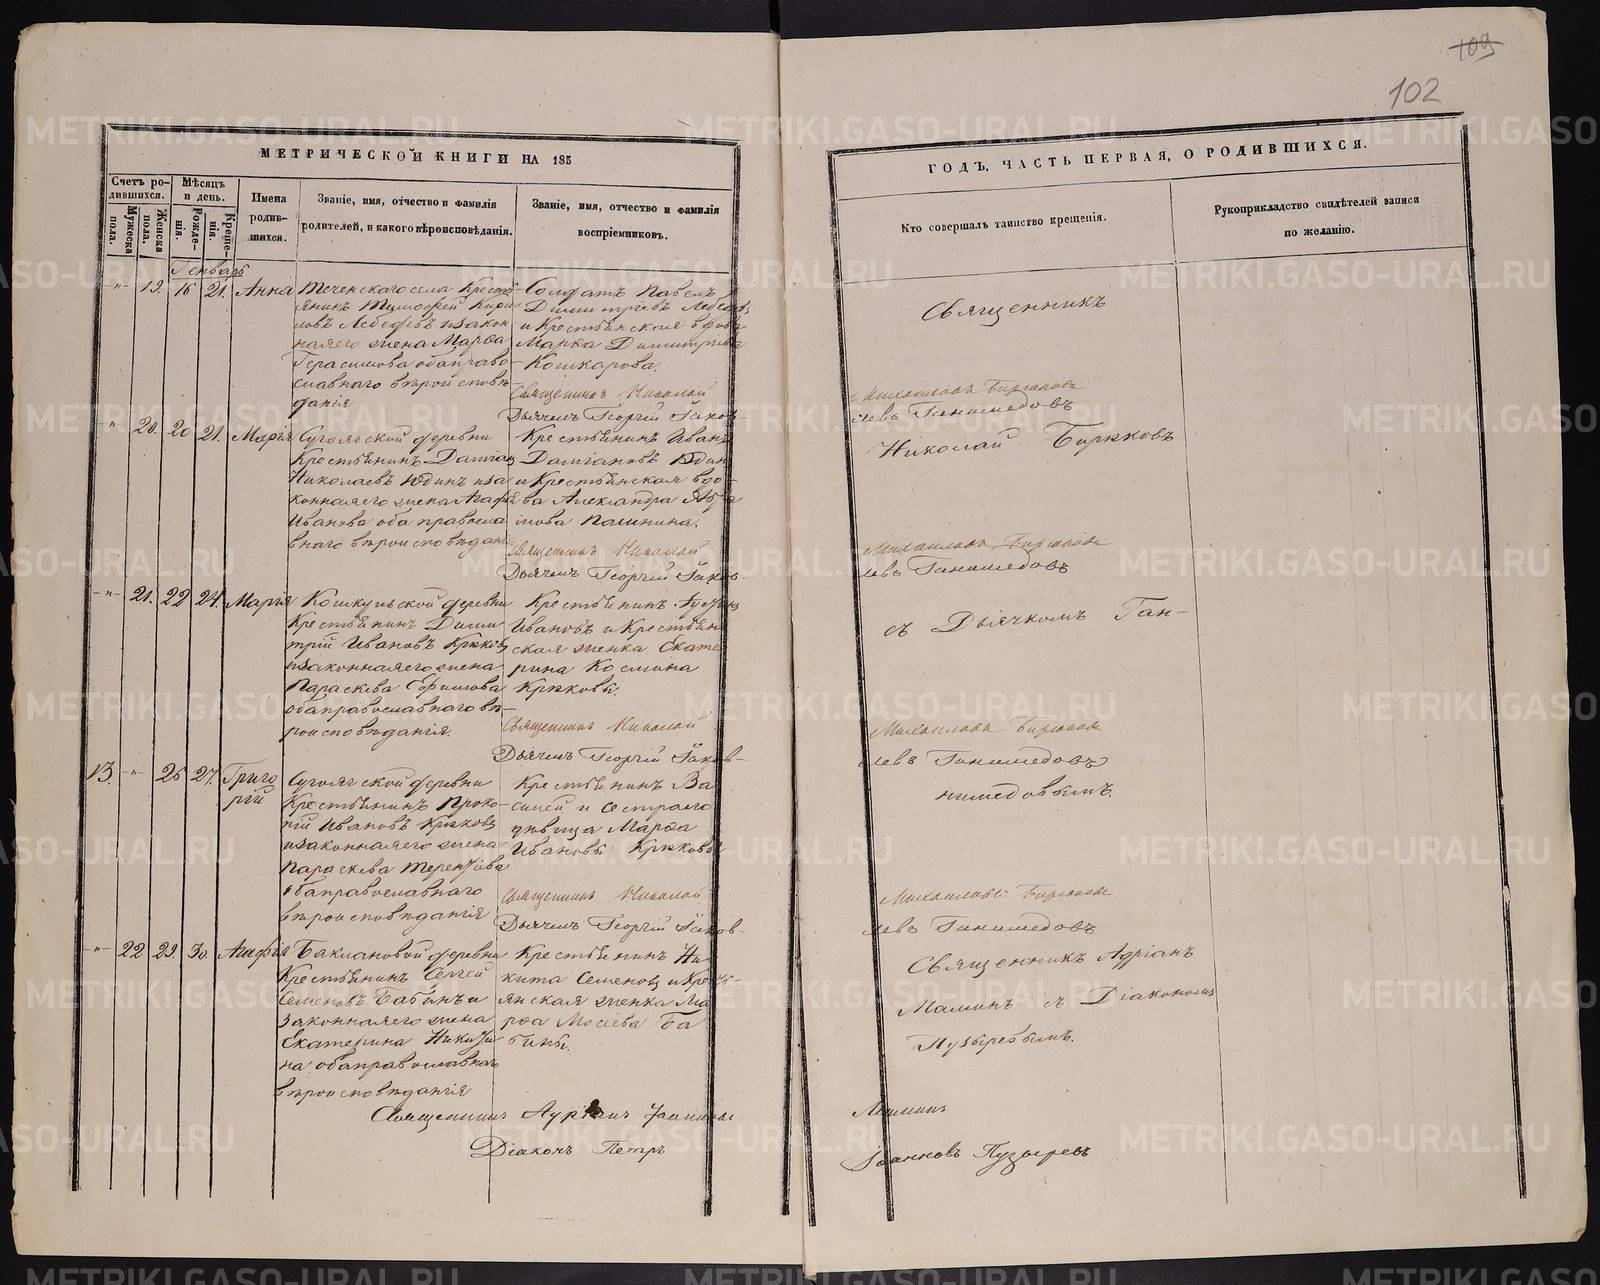 109
102
МЕТРИЧЕСКОЙ КНИГИ НА 185
ГОДЪ, ЧАСТЬ ПЕРВАЯ, О РОДИВШИХСЯ.
Счетъ ро-
дившихся.
Мужеска
пола.
Женска
пола.
Мѣсяцъ
и день.
Рожде-
нія.
Креще-
нія.
Имена
родив-
шихся.
Званіе, имя, отчество и фамилія
родителей, и какого вѣроисповѣданія.
Званіе, имя, отчество и фамилія
воспріемниковъ.
Кто совершалъ таинство крещенія.
Рукоприкладство свидѣтелей записи
по желанію.
Генварь
19. 16 21. Анна
Теченскаго села Кресть
янинъ Тимофей Кирил
ловъ Лебедевъ и закон
ная его жена Марѳа
Герасимова оба право-
славнаго вѣроисповѣ
данія
Солдатъ Павелъ
Димитріевъ Лебедевъ
и Крестьянская вдова
Марѳа Димитріева
Кошкарова.
Священникъ
Священникъ Николай Михайловъ Бирюковъ
Дьячекъ Георгій Іаков-левъ Ганимедовъ
20. 20 21. Марія
Сугоякской деревни
Крестьянинъ Даміанъ
Николаевъ Юдинъ и за
конная его жена Агафья
Иванова оба правосла
внаго вѣроисповѣданія
Крестьянинъ Иванъ
Даміановъ Юдинъ
и Крестьянская вдо-
ва Александра
Николай Бирюковъ
Священникъ Николай Михайловъ Бирюковъ
Дьячекъ Георгій Іаков-левъ Ганимедовъ
21. 22 24. Марія
Кошкульской деревни
Крестьянинъ Дими
трій Ивановъ Крюковъ
и законная его жена
Параскева Ефимова
оба православнаго вѣ-
роисповѣданія.
Крестьянинъ
Ивановъ и Крестьян
ская женка Екате
рина Космина
Крюковы.
съ Дьячкомъ Ган-
Священникъ Николай Михайловъ Бирюковъ
Дьячекъ Георгій Іаков-левъ Ганимедовъ
13. 26 27. Григо
рій
Сугоякской деревни
Крестьянинъ Проко-
пій Ивановъ Крюковъ
и законная его жена
Параскева Терентьева
оба православнаго
вѣроисповѣданія
Крестьянинъ Ва
силій и сестра его
дѣвица Марѳа
Ивановы Крюковы
нимедовымъ.
Священникъ Николай Михайловъ Бирюковъ
Дьячекъ Георгій Іаков-левъ Ганимедовъ
22 29. 30. Агафія
Баклановой деревни
Крестьянинъ Сергей
Семеновъ Бабинъ и
законная его жена
Екатерина Никити
на оба православнаго
вѣроисповѣданія
Крестьянинъ Ни
кита Семеновъ и Кресть-
янская женка Ма
рѳа Мосеева Ба
бины.
Священникъ Адріанъ
Маминъ съ Діакономъ
Пузыревымъ.
Священникъ Маминъ
Діаконъ Петръ Іоанновъ Пузыревъ